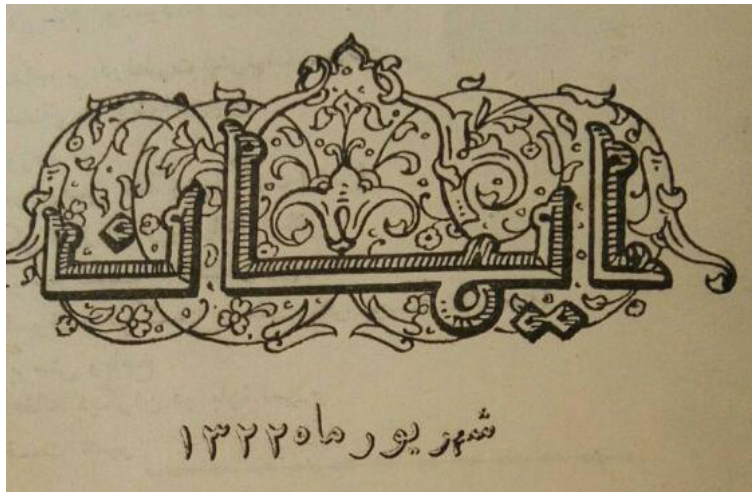 ایمان
شهریور ماه ۱۳۲۲